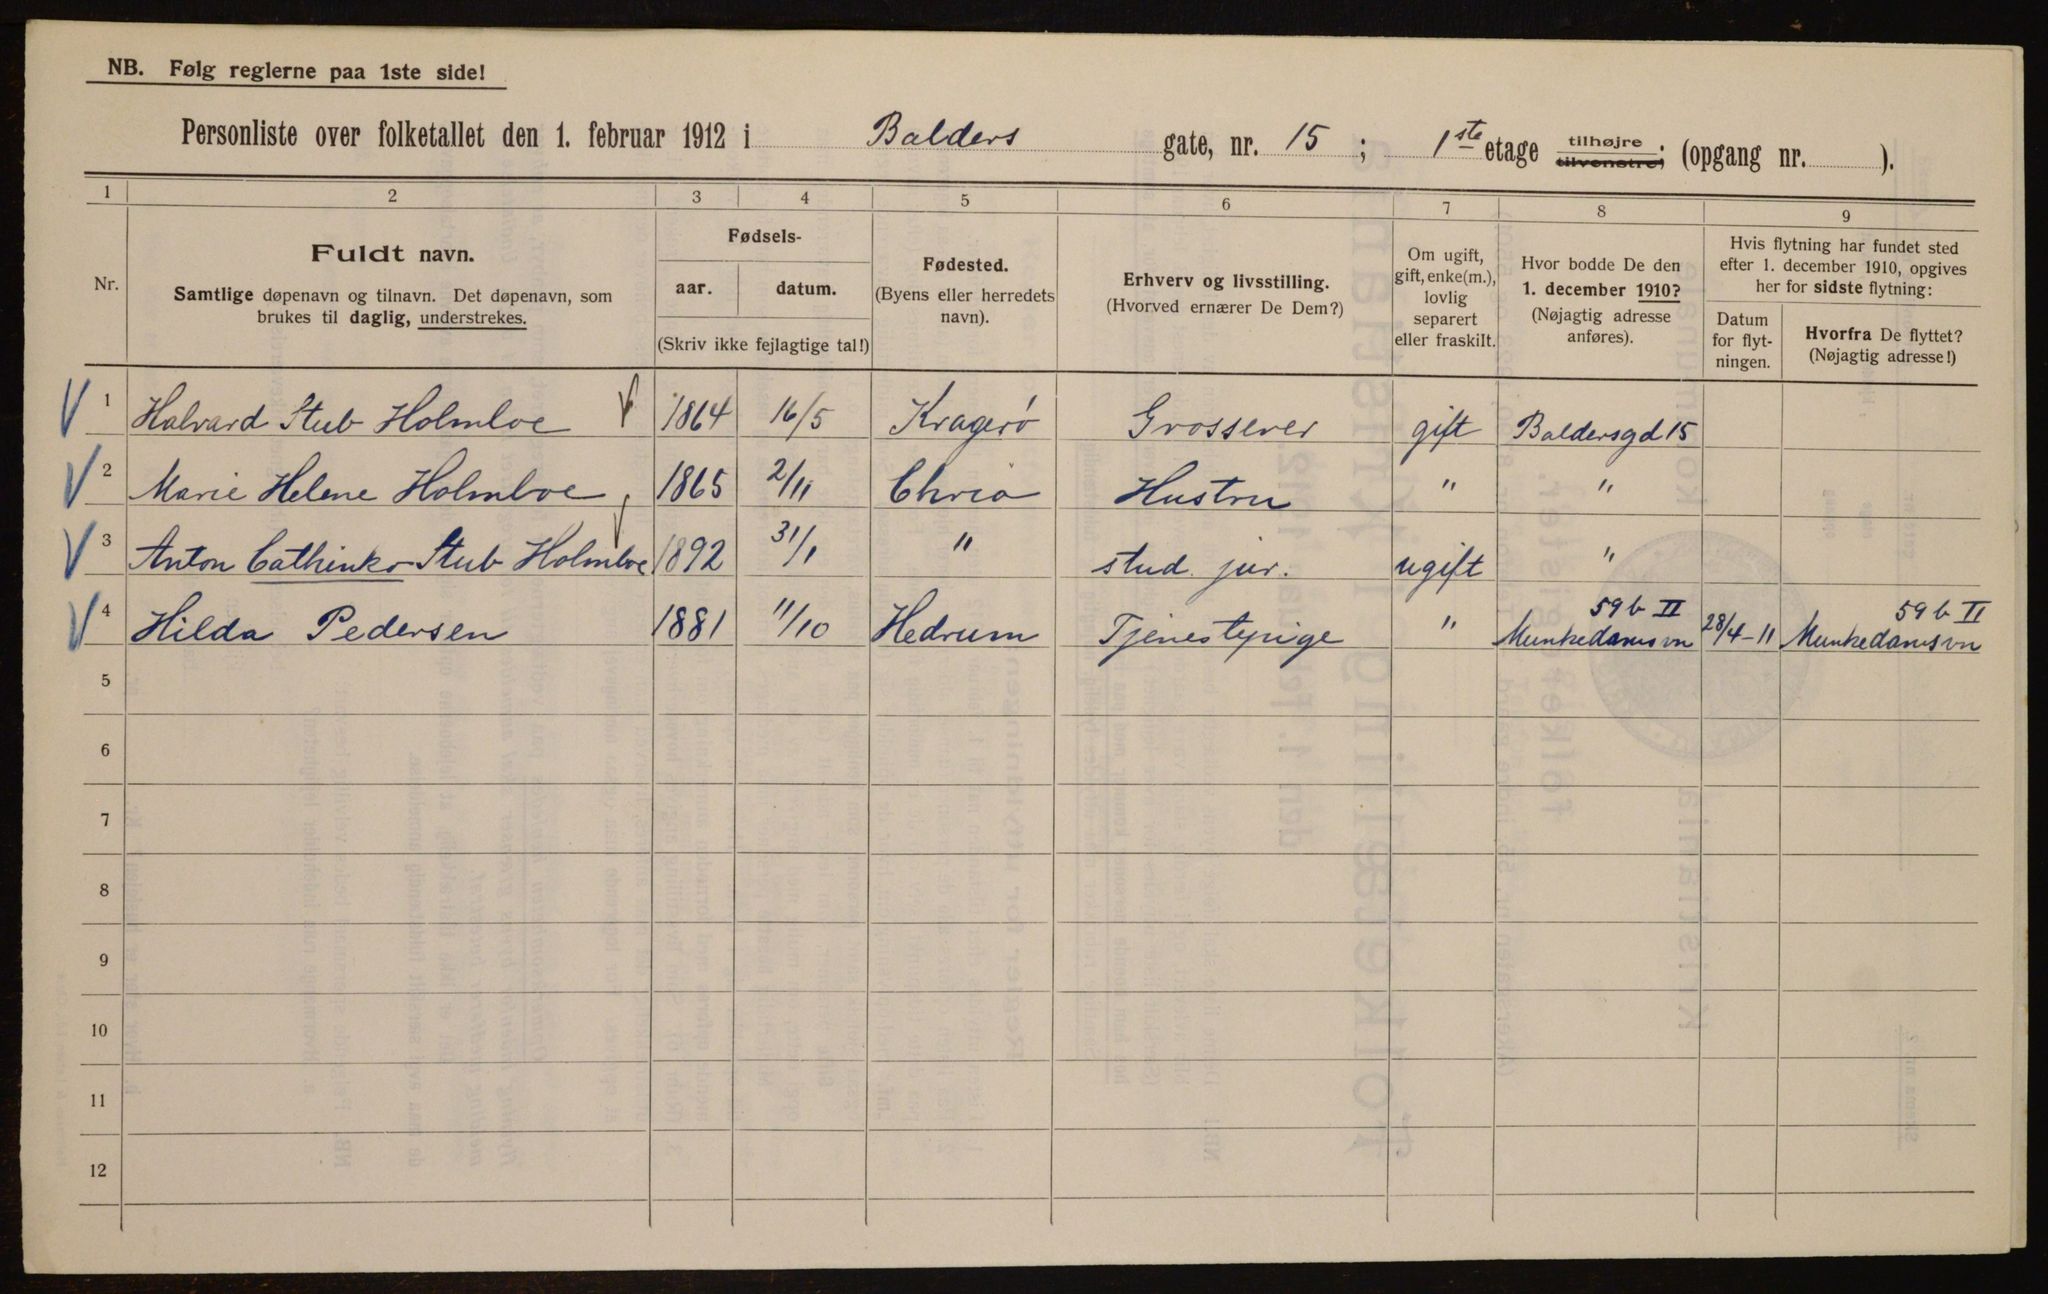 NB. Følg reglerne paa 1ste side!
Personliste over folketallet den 1. februar 1912 i Balders gate, nr. 15 ; 1ste etage tilhøjre tilvenstre; (opgang nr. ).
1 2 3 4 5 6 7 8 9
Nr.
Fuldt navn.
Samtlige døpenavn og tilnavn. Det døpenavn, som
brukes til daglig, understrekes.
Fødsels-
aar. datum.
(Skriv ikke fejlagtige tal!)
Fødested.
(Byens eller herredets
navn).
Erhverv og livsstilling.
(Hvorved ernærer De Dem?)
Om ugift,
gift, enke(m.),
lovlig
separert
eller fraskilt.
Hvor bodde De den
1. december 1910?
(Nøjagtig adresse
anføres).
Hvis flytning har fundet sted
efter 1. december 1910, opgives
her for sidste flytning:
Datum
for flyt-
ningen.
Hvorfra De flyttet?
(Nøjagtig adresse!)
1 Halvard Stub Holmboe 1864 16/5 Kragerø Grosserer gift Baldersgd 15
2 Marie Helene Holmboe 1865 2/11 Chria Hustru " "
3 Anton Cathinko Stub Holmboe 1892 31/1 " stud. jur. ugift "
4 Hilda Pedersen 1881 11/10 Hedrum Tjenestepige " Munkedamsvn 59 b II 28/4-11 Munkedamsvn 59 b II
5
6
7
8
9
10
11
12